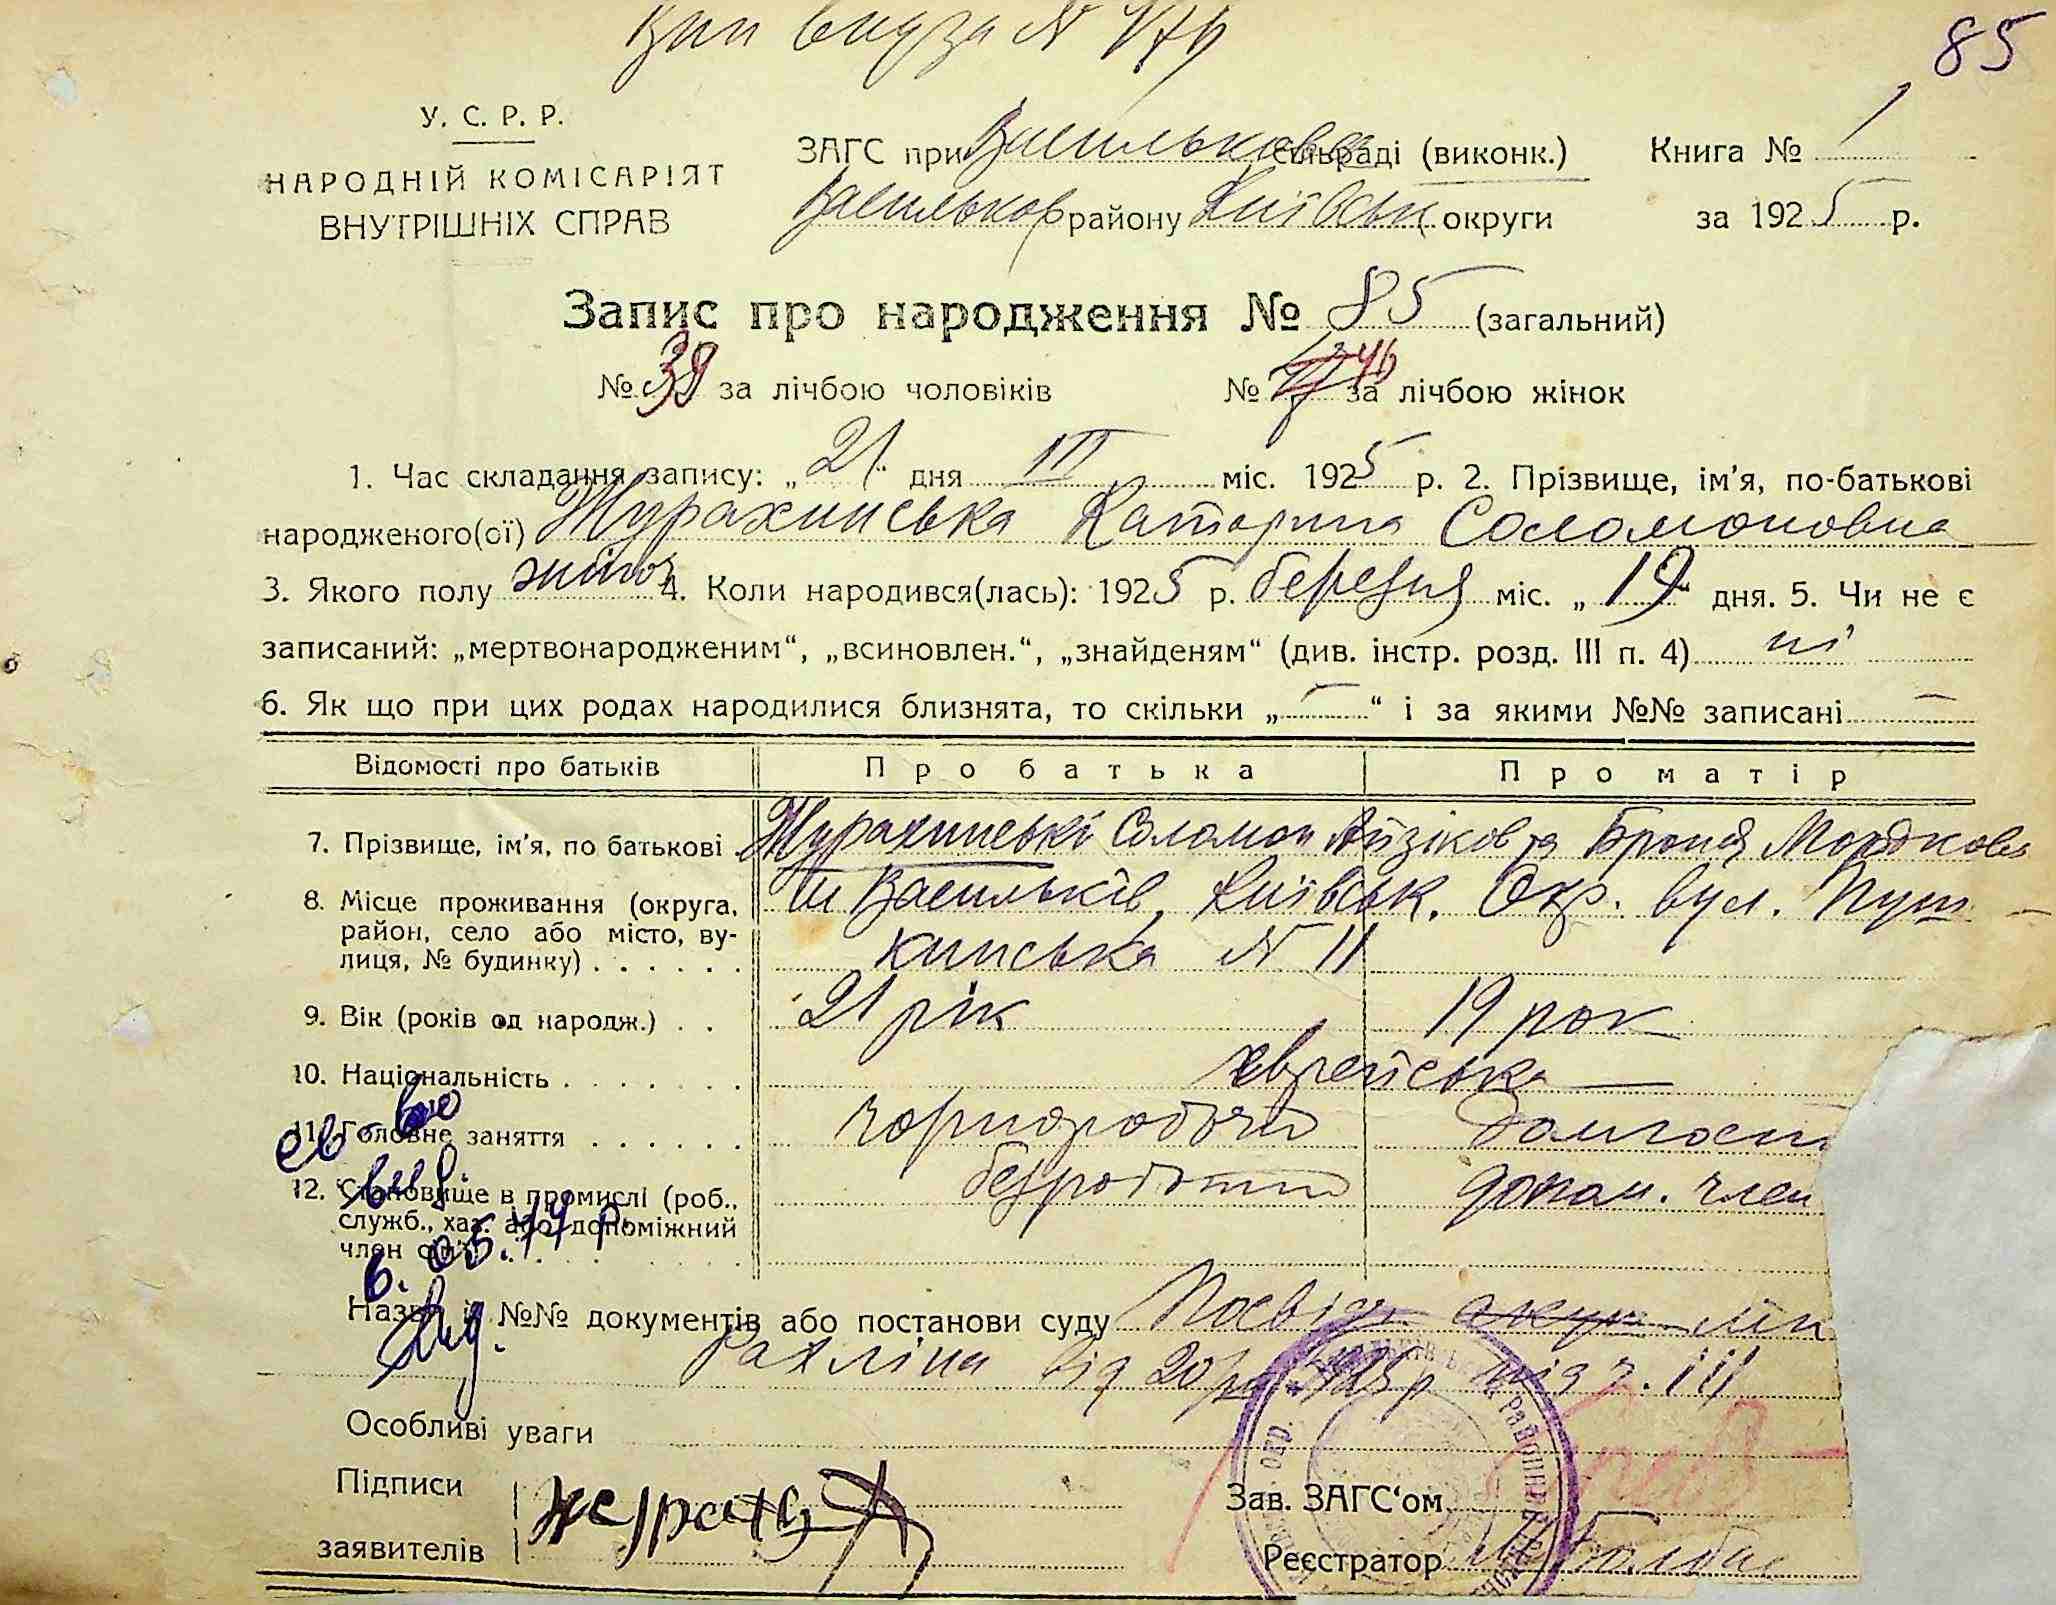 85
У. С. Р. Р.
НАРОДНІЙ КОМІСАРІЯТ
ВНУТРІШНІХ СПРАВ
ЗАГС при Васильков сільраді (виконк.)
Васильков району Київськ. округи
Книга № 1
за 1925 р.
Запис про народження № 85 (загальний)
№ 39 за лічбою чоловіків № 46 за лічбою жінок
1. Час складання запису: „ 21 “ дня III міс. 1925 р. 2. Прізвище, ім’я, по-батькові
народженого(ої) Журахинська Катерина Соломоновна
3. Якого полу жіноч 4. Коли народився(лась): 1925 р. березня міс. „ 19 “ дня. 5. Чи не є
записаний: „мертвонародженим“, „всиновлен.“, „знайденям“ (див. інстр. розд. III п. 4) ні
6. Як що при цих родах народилися близнята, то скільки „ — “ і за якими №№ записані —
Відомості про батьків Про батька Про матір
7. Прізвище, ім’я, по батькові Журахинські Соломон Айзіков та Броня Мордкова
8. Місце проживання (округа, м Васильків, Київськ. Окр. вул. Пуш-
район, село або місто, ву-
лиця, № будинку) кинська № 11
9. Вік (років од народж.) 21 рік 19 рок
10. Національність єврейська
11. Головне заняття чорноробочий домгосп
12. Становище в промислі (роб., безробітний допом. член
служб., хаз. або допоміжний
член сім'ї)
6. 05. 44 р.
Назва і №№ документів або постанови суду Посвідч
Рахліна від 20/III 1925 р під ч. 111
Особливі уваги
Підписи
заявителів
Зав. ЗАГС‘ом
Реєстратор